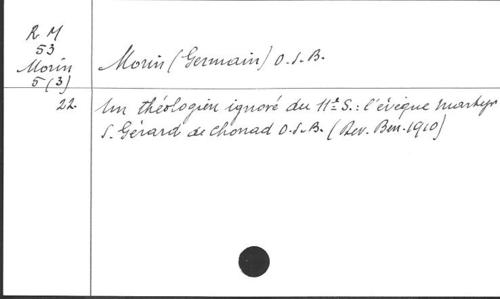 R M
53
Morin
5 (3)
Morin (Germain) O.S.B.
22
Un théologien ignoré du 11e S.: l'évêque martyr
S. Gérard de Chonad O.S.B. (Rev. Ben. 1910)